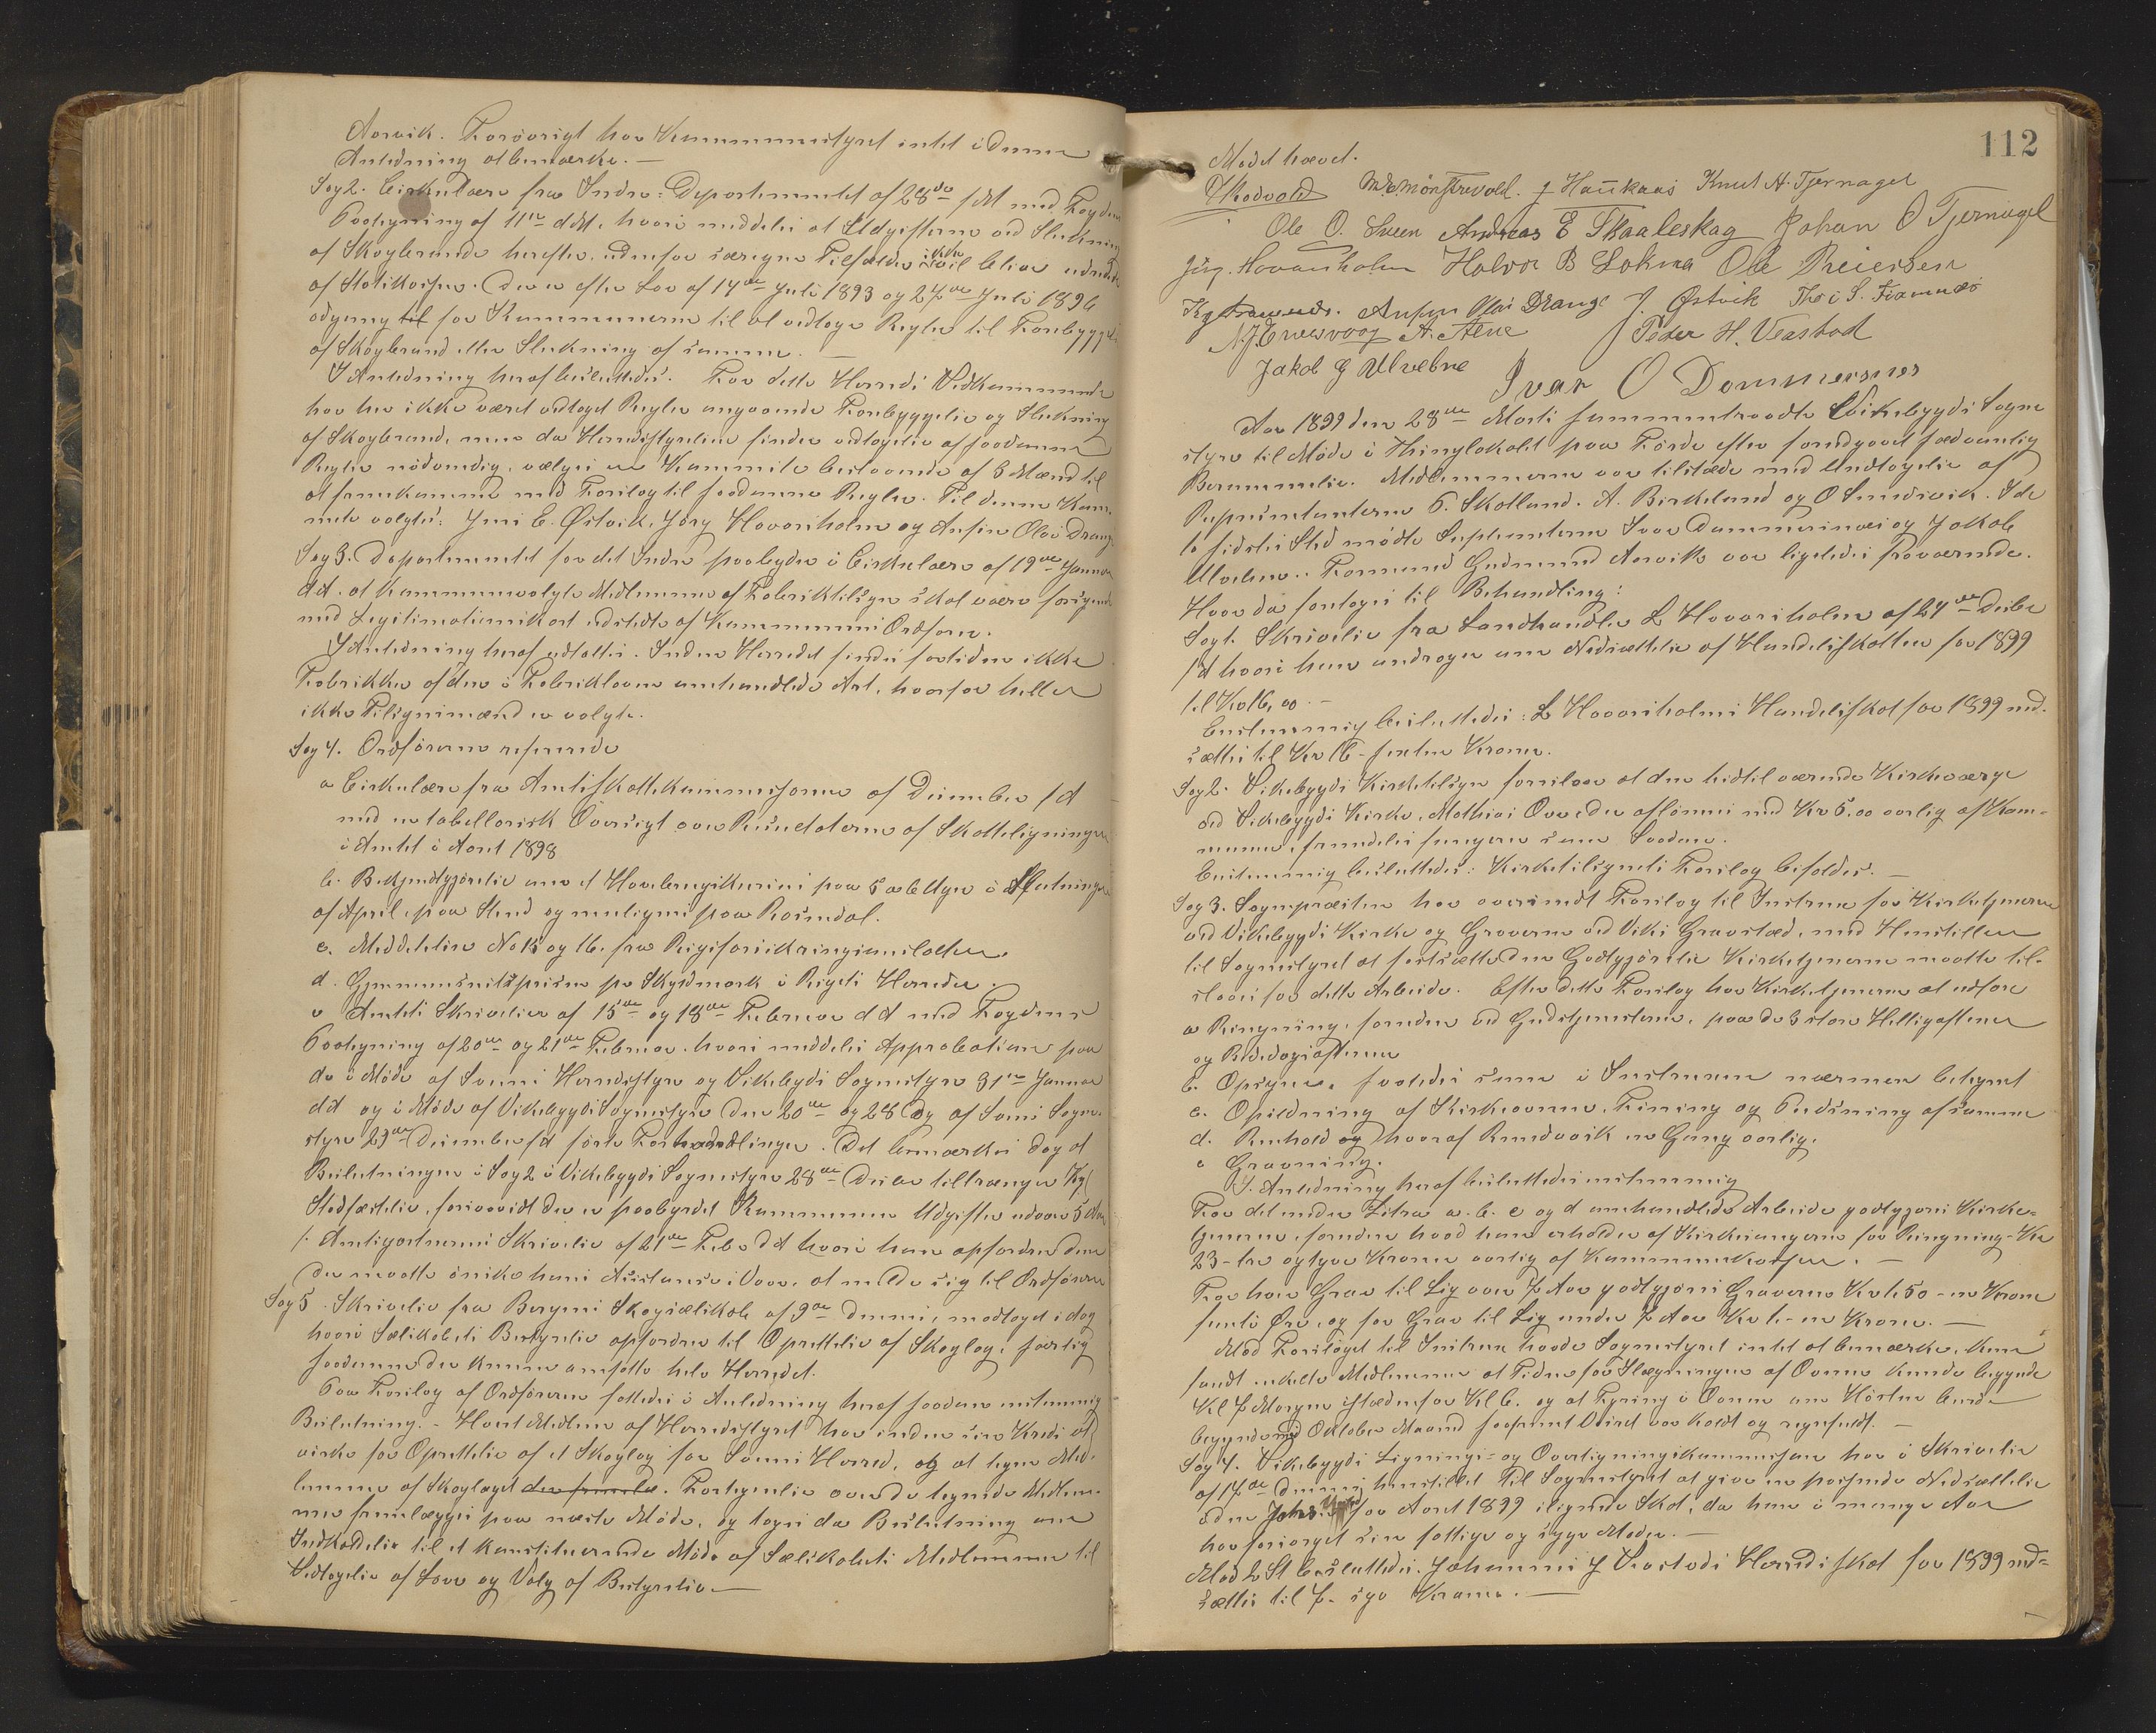 Aarvik. Forøvrigt har Kommunestyret intet i denne
Anledning at bemærke. —
Sag 2. Cirkulære fra Indre-Departementet af 28de f M med Fogdens
Paategning af 11te d Mt, hvori meddeles at Udgifterne ved Slukning
af Skogbrande herefter, udenfor særegne Tilfælde ikke vil blive udredet
af Statskassen. Der er efter Lov af 14de Juli 1893 og 27de Juli 1896
adgang til for Kommunerne til at vedtage Regler til Forebyggelse
af Skogbrand eller Slukning af samme. —
I Anledning heraf besluttedes. For dette Herreds Vedkommende
har her ikke været vedtaget Regler angaaende Forebyggelse og Slukning
af Skogbrand, men da Herredsstyrelsen finder vedtagelse af saadanne
Regler nødvendig, vælges en Kommite bestaaende af 3 Mænd til
at fremkomme med Forslag til saadanne Regler. Til denne Kom-
mite valgtes: Jens E. Østvik, Jørg Hovarsholm og Anfin Olai Drange
Sag 3. Departementet for det Indre paabyder i Cirkulære af 19de Januar
d.A. at kommunevalgte Medlemmer af Fabriktilsyn skal være forsynede
med Legitimationskort udstedt af Kommunens Ordfører.
I Anledning heraf udtaltes. Inden Herredet findes fortiden ikke
Fabrikker af den i Fabrikloven omhandlede Art, hvorfor heller
ikke Tilsynsmænd er valgte.
Sag 4. Ordføreren refererede
a Cirkulære fra Amtsskattekommissionen af December f A
med en tabellarisk Oversigt over Resultaterne af Skatteligningen
i Amtet i Aaret 1898
b. Bekjendtgjørelse om et Havebrugskursus paa 5 a 6 Uger i Slutningen
af April, paa Stend og muligens paa Rosendal.
c. Meddelelse No 15 og 16. fra Rigsforsikringsanstalten.
d. Gjennemsnitspriser pr Skyldmark i Rigets Herreder.
e Amtets Skrivelser af 15de og 18de Februar d A med Fogdens
Paategning af 20de og 21de Februar, hvori meddeles Approbation paa
de i Møde af Sveens Herredsstyre og Vikebygds Sognestyre 31te Januar
d A og i Møde af Vikebygds Sognestyre den 20de og 28de og af Sveens Sogne-
styre 29de December f A førte Forhandlinger. Det bemærkes dog at
Beslutningen i Sag 2 i Vikebygds Sognestyre 28de Decbr tiltrænger Kgl
Stadfæstelse, forsaavidt der er paabyrdet Kommunen Udgifter udover 5 Aar
f. Amtsgartnerens Skrivelse af 27de Febr d A hvori han opfordrer dem
der maatte ønske hans Assistance i Vaar, at melde sig til Ordføreren
Sag 5. Skrivelse fra Bergens Skogselskab af 9de dennes, modtaget i dag
hvori Selskabets Bestyrelse opfordrer til Oprettelse af Skoglag, særlig
saadanne der kunne omfatte hele Herredet.
Paa Forslag af Ordføreren fattedes i Anledning heraf saadan enstemmig
Beslutning. - Hvert Medlem af Herredsstyret har inden sin Kreds at
virke for Oprettelse af et Skoglag for Sveens Herred, og at tegne Med-
lemmer af Skoglaget. Fortegnelse over de tegnede Medlem-
mer fremlægges paa næste Møde, og tages da Beslutning om
Indkaldelse til et konstituerende Møde af Selskabets Medlemmer til
Vedtagelse af Love og Valg af Bestyrelse. —
112
Mødet hævet.
J Haukaas Knut A. Tjernagel
Ole O. Sveen Andreas E Skaaleskag Johan O Tjernagel
Jørg. Hovarsholm Halvor B Lokna Ole Reiersen
Anfin Olai Drange J. Østvik
A. Alne Peder H. Veastad
Jakob G Ulvebne Ivar O Dommersnes
Aar 1899 den 28de Marts sammentraadte Vikebygds Sogne
styre til Møde i Thinglokalet paa Førde efter foregaaet sædvanlig
Berammelse. Medlemmerne var tilstæde med Undtagelse af
Repræsentanterne O. Skotland. A. Birkeland og O Smedsvik. I de
to sidstes Sted mødte Suppleanterne Ivar Dommersnes og Jakob
Ulvebne. Formand Gudmund Aarvik var ligeledes fraværende.
Hvor da foretoges til Behandling:
Sag 1. Skrivelse fra Landhandler L Hovarsholm af 27de Decbr
f A hvori han androger om Nedsættelse af Handelsskatten for 1899
til Kr 16,00. —
Enstemmig besluttedes: L Hovarsholms Handelsskat for 1899 ned-
sættes til Kr 16 - sexten Kroner.
Sag 2. Vikebygds Kirketilsyn foreslaar at den hidtil værende Kirkeværge
ved Vikebygds Kirke, Mathias Ovredes aflønnes med Kr 5.00 aarlig af Kom-
munen, fremdeles fungerer som Saadan.
Enstemmig besluttedes: Kirketilsynets Forslag bifaldes. —
Sag 3. Sognepræsten har oversendt Forslag til Instrux for Kirketjeneren
ved Vikebygds Kirke og Graveren ved Viks Gravsted, med Henstillen
til Sognestyret at fastsætte den Godtgjørelse Kirketjeneren maatte til-
staaes for dette Arbeide. Efter dette Forslag har Kirketjeneren at udføre
a Ringning, foruden ved Gudstjenesterne, paa de 3 store Helligaftener
og Bededagsaftenen
b. Opsynet, saaledes som i Instruxen nærmere betegnet
c. Opildning af Kirkeovnen, Feining og Pudsning af samme
d. Renhold og hvoraf Rundvask en Gang aarlig.
e Gravning.
I. Anledning heraf besluttedes enstemmig
For det under Litra a. b. c og d omhandlede Arbeide godtgjøres Kirke-
tjeneren, foruden hvad han erholder af Kirkesangeren for Ringning - Kr
23 - tre og tyve Kroner aarlig af Kommunekassen. —
For hver Grav til Lig over 7 Aar godtgjøres Graveren Kr 1.50 - en Krone
femti Øre, og for Grav til Lig under 7 Aar Kr 1. - en Krone. —
Mod Forslaget til Instrux havde Sognestyret intet at bemærke, kun
fandt enkelte Medlemmer at Tiden for Ilægningen af Ovnen kunde begynde
Kl 7 Morgen istedenfor Kl 6. og at Fyring i Ovnen om Høsten burde
begynde med Oktober Maaned saafremt Veiret var koldt og regnfuldt. —
Sag 4. Vikebygds Lignings- og Overligningskommission har i Skrivelse
af 17de dennes henstillet til Sognestyret at give en passende Nedsættelse
i den for Aaret 1899 ilignede Skat, da han i mange Aar
har forsørget sin fattige og syge Moder. —
Mod 2 St besluttedes. Johannes J Veastads Herredsskat for 1899 ned-
sættes til 7 - syv Kroner. —